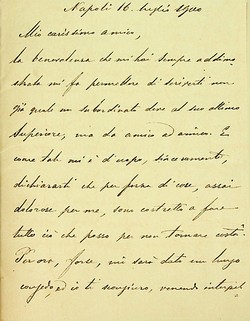 Napoli 16. luglio 1900
Mio carissimo amico,
la benevolenza che mi hai sempre addimo
strata mi fa permettere di scriverti non
già quale un subordinato deve al suo ottimo
Superiore, ma da amico ad amico. E
come tale mi è d'uopo, sinceramente,
dichiararti che per forza di cose, assai
dolorose per me, sono costretto a fare
tutto ciò che posso per non tornare costà.
Per ora, forse, mi sarà dato un lungo
congedo, ed io ti scongiuro, venendo interpel